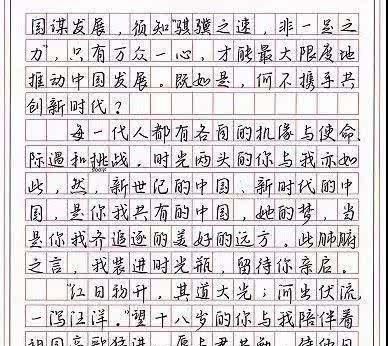 国谋发展，须知“骐骥之速，非一足之
力”，只有万众一心，才能最大限度地
推动中国发展。既如是，何不携手共
创新时代？
每一代人都有各自的机缘与使命、
际遇和挑战，时光两头的你与我亦如
此，然，新世纪的中国、新时代的中
国，是你我共有的中国，她的梦，当
是你我齐追逐的美好的远方。此肺腑
之言，我装进时光瓶，留待你亲启。
“红日初升，其道大光；河出伏流，
一泻汪洋。”望十八岁的你与我陪伴着